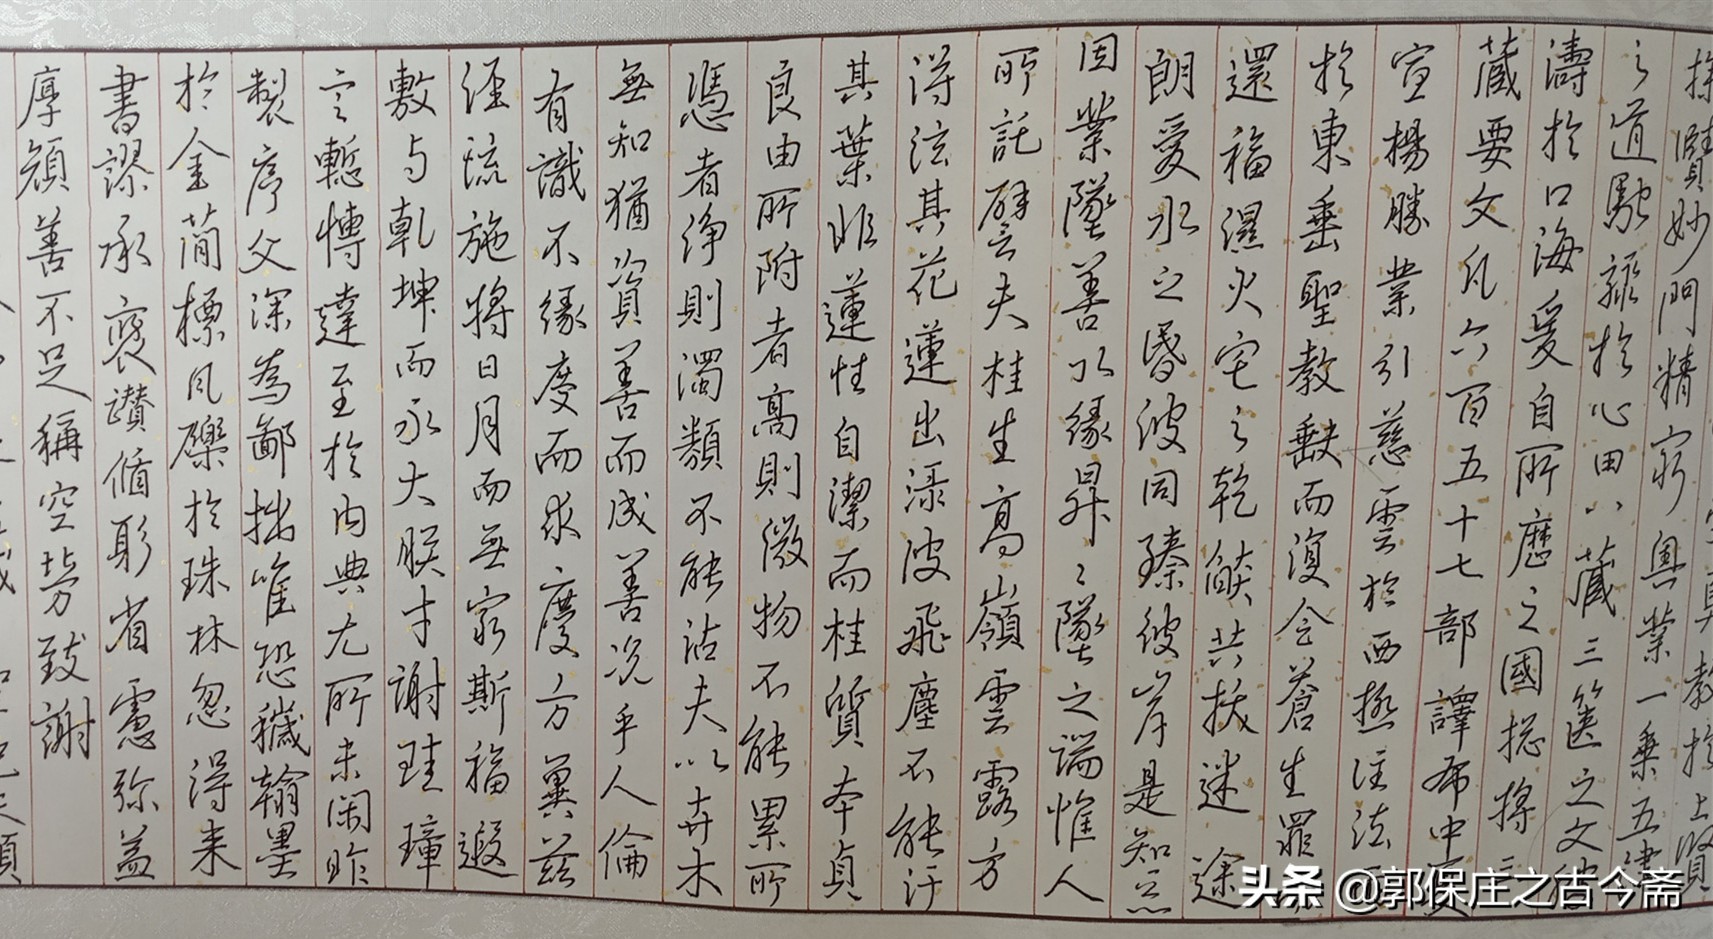 探賾妙門精窮奧業一乘五律
之道馳驟於心田八藏三篋之文
濤於口海爰自所歷之國總將三
藏要文凡六百五十七部譯布中夏
宣揚勝業引慈雲於西極注法
於東垂聖教缺而復全蒼生罪
還福濕火宅之乾燄共拔迷途
朗愛水之昏波同臻彼岸是知惡
因業墜善以緣昇昇墜之端惟人
所託譬夫桂生高嶺雲露方
得泫其花蓮出淥波飛塵不能汙
其葉非蓮性自潔而桂質本貞
良由所附者高則微物不能累所
憑者淨則濁類不能沾夫以卉木
無知猶資善而成善況乎人倫
有識不緣慶而求慶方冀茲
經流施將日月而無窮斯福遐
敷与乾坤而永大朕才謝珪璋
言慙博達至於內典尤所未閑昨
製序文深為鄙拙唯恐穢翰墨
於金簡標瓦礫於珠林忽得來
書謬承褒讚循躬省慮弥益
厚顏善不足稱空勞致謝
头条 @郭保庄之古今斋